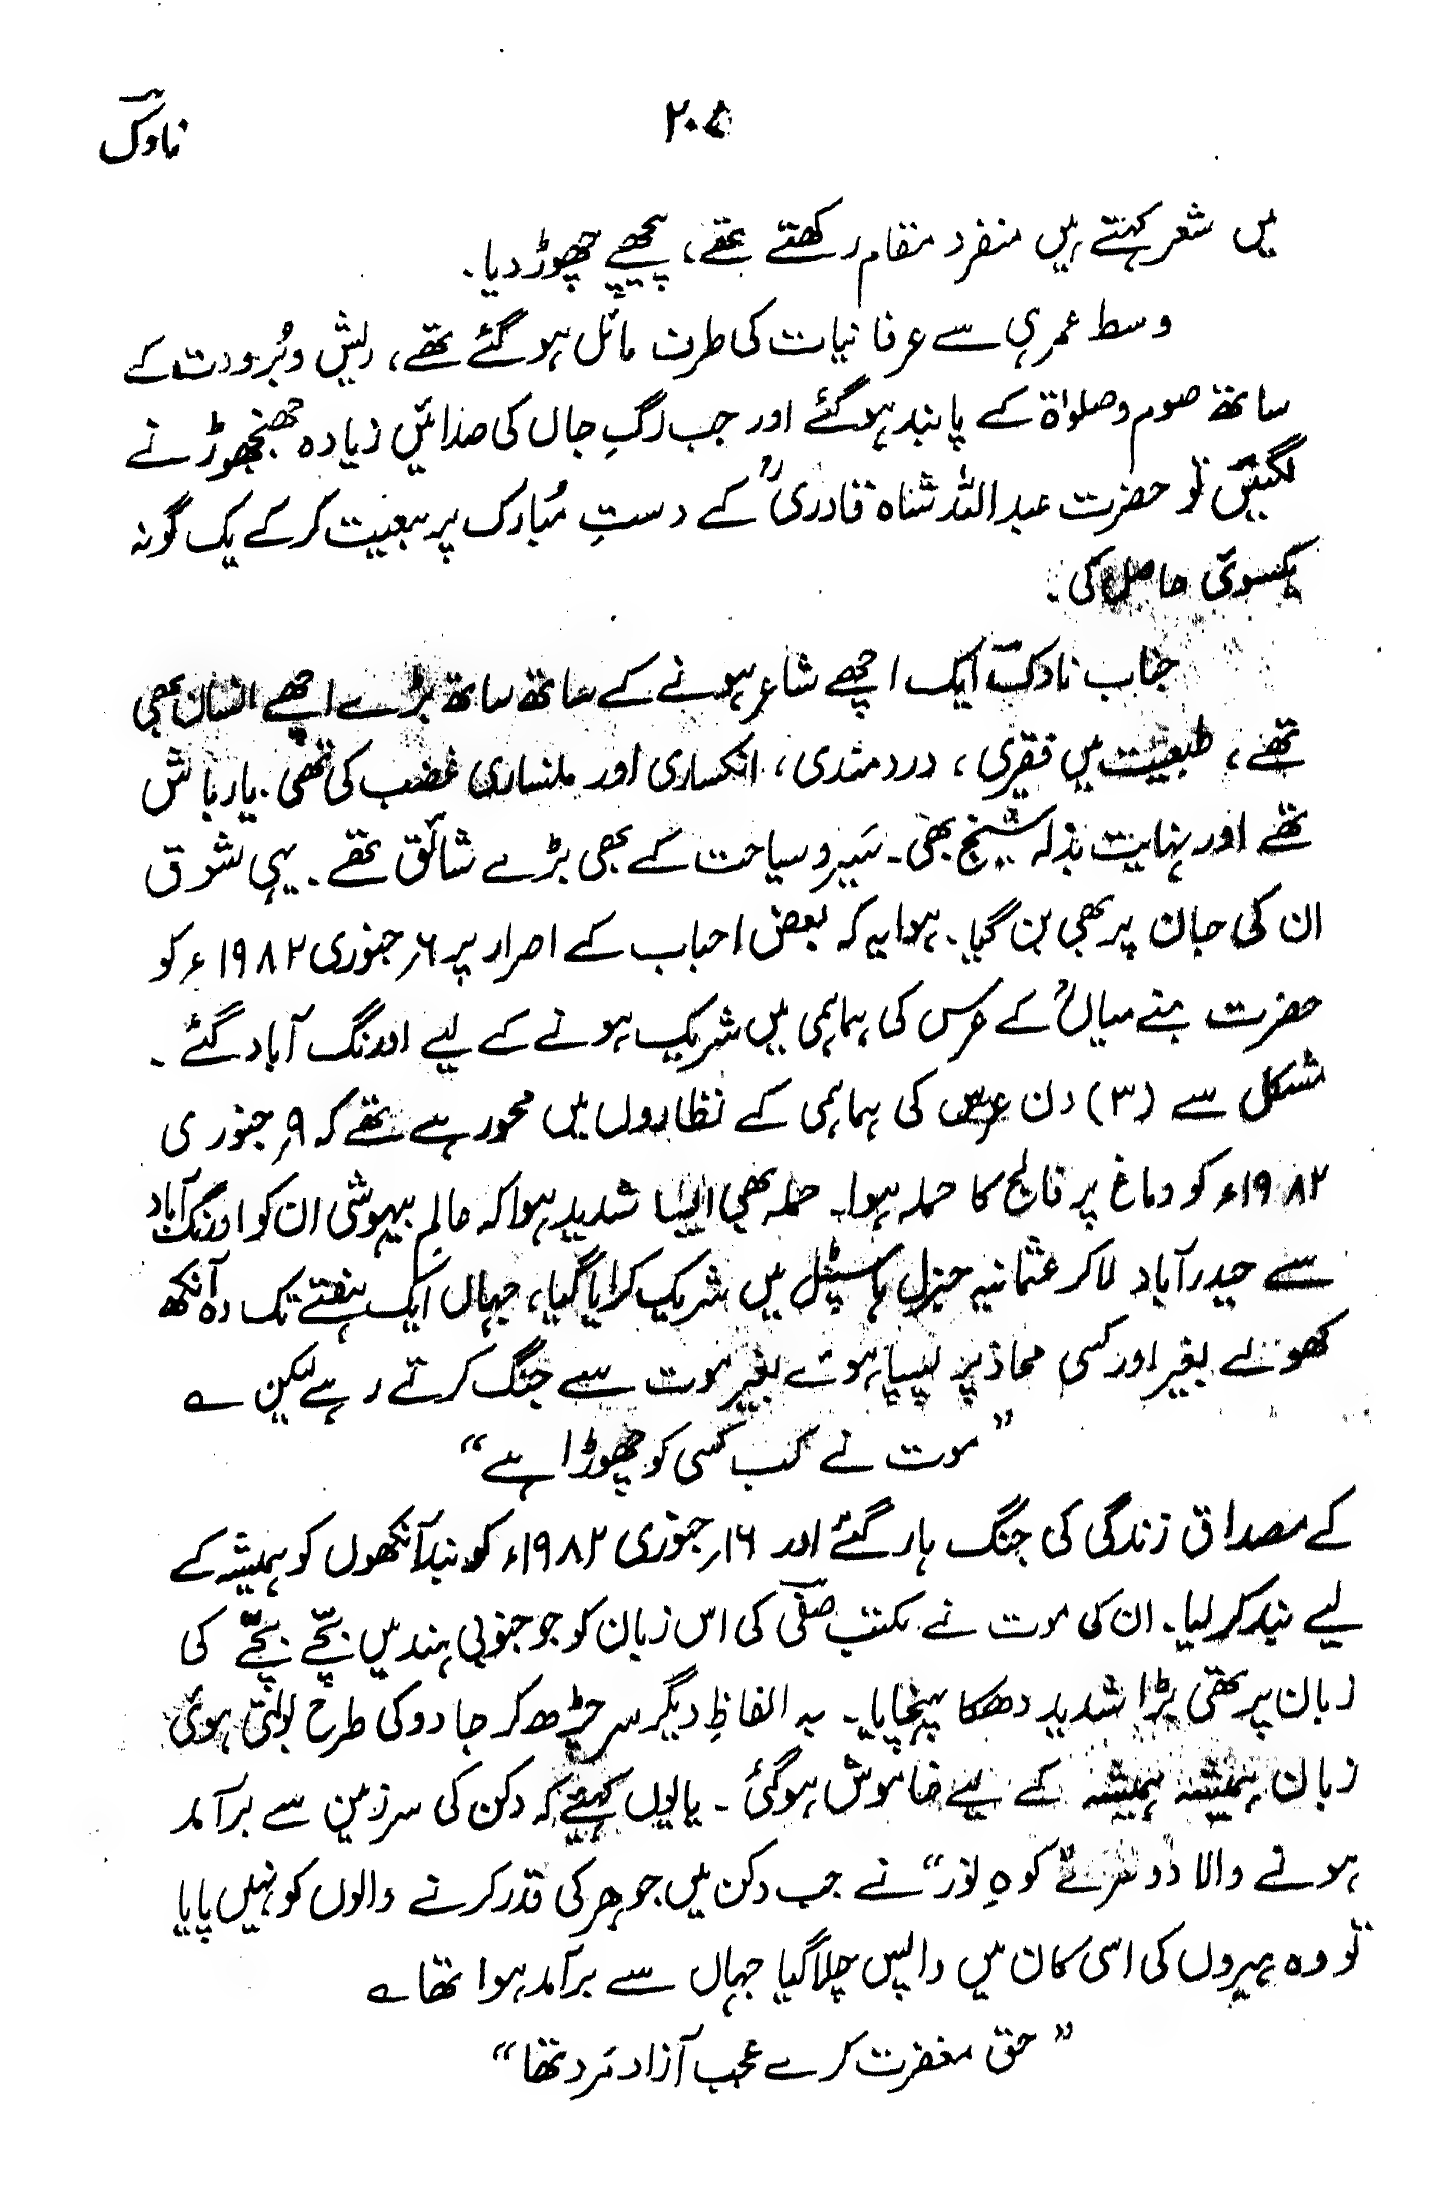 ناوکؔ
۲۰۵
میں شعر کہتے ہیں منفرد مقام رکھتے تھے، پیچھے چھوڑ دیا۔
وسط عمر ہی سے عرفانیات کی طرف مائل ہوگئے تھے، ریش و بُرودت کے
ساتھ صوم و صلوٰۃ کے پابند ہوگئے اور جب رگِ جاں کی صدائیں زیادہ جھنجھوڑنے
لگیں تو حضرت عبداللہ شاہ قادریؒ کے دستِ مُبارک پر بیعت کرکے یک گونہ
یکسوئی حاصل کی۔
جناب ناوکؔ ایک اچھے شاعر ہونے کے ساتھ ساتھ بڑے اچھے انسان بھی
تھے، طبیعت میں فقیری، دردمندی، انکساری اور ملنساری غضب کی تھی۔ یار باش
تھے اور نہایت بذلہ سنج بھی۔ سَیر و سیاحت کے بھی بڑے شائق تھے۔ یہی شوق
ان کی جان پر بھی بن گیا۔ ہوا یہ کہ بعض احباب کے اصرار پر ۶؍جنوری ۱۹۸۲ء کو
حضرت بنے میاںؒ کے عرس کی ہماہمی میں شریک ہونے کے لیے اورنگ آباد گئے۔
مشکل سے (۳) دن عرس کی ہماہمی کے نظاروں میں محو رہے تھے کہ ۹؍جنوری
۱۹۸۲ء کو دماغ پر فالج کا حملہ ہوا۔ حملہ بھی ایسا شدید ہوا کہ عالمِ بیہوشی ان کو اورنگ آباد
سے حیدرآباد لاکر عثمانیہ جنرل ہاسپٹل میں شریک کرایا گیا، جہاں ایک ہفتے تک وہ آنکھ
کھولے بغیر اور کسی محاذ پر پسپا ہوئے بغیر موت سے جنگ کرتے رہے لیکن ؎
”موت نے کب کسی کو چھوڑا ہے“
کے مصداق زندگی کی جنگ ہار گئے اور ۱۶؍جنوری ۱۹۸۲ء کو بند آنکھوں کو ہمیشہ کے
لیے بند کر لیا۔ ان کی موت نے مکتبِ صفیؔ کی اس زبان کو جو جنوبی ہند میں بچّے بچّے کی
زبان پر تھی بڑا شدید دھکا پہنچایا۔ بہ الفاظِ دیگر سر چڑھ کر جادو کی طرح بولتی ہوئی
زبان ہمیشہ ہمیشہ کے لیے خاموش ہوگئی۔ یا یوں کہئیے کہ دکن کی سرزمین سے برآمد
ہونے والا دوسرے کوہِ نور“ نے جب دکن میں جوہر کی قدر کرنے والوں کو نہیں پایا
تو وہ ہیروں کی اسی کان میں واپس چلا گیا جہاں سے برآمد ہوا تھا ؎
”حق مغفرت کرے عجب آزاد مَرد تھا“